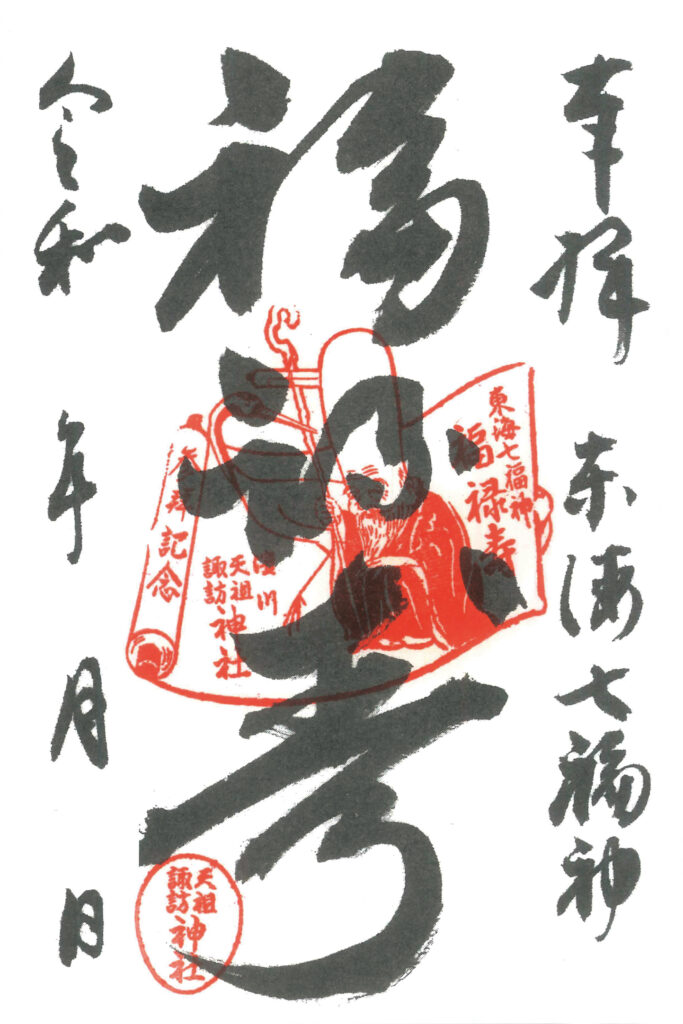 奉拝 東海七福神
福禄寿
令和 年 月 日
東海七福神
福禄寿
天祖
諏訪
神社
参拝記念
天祖
諏訪
神社